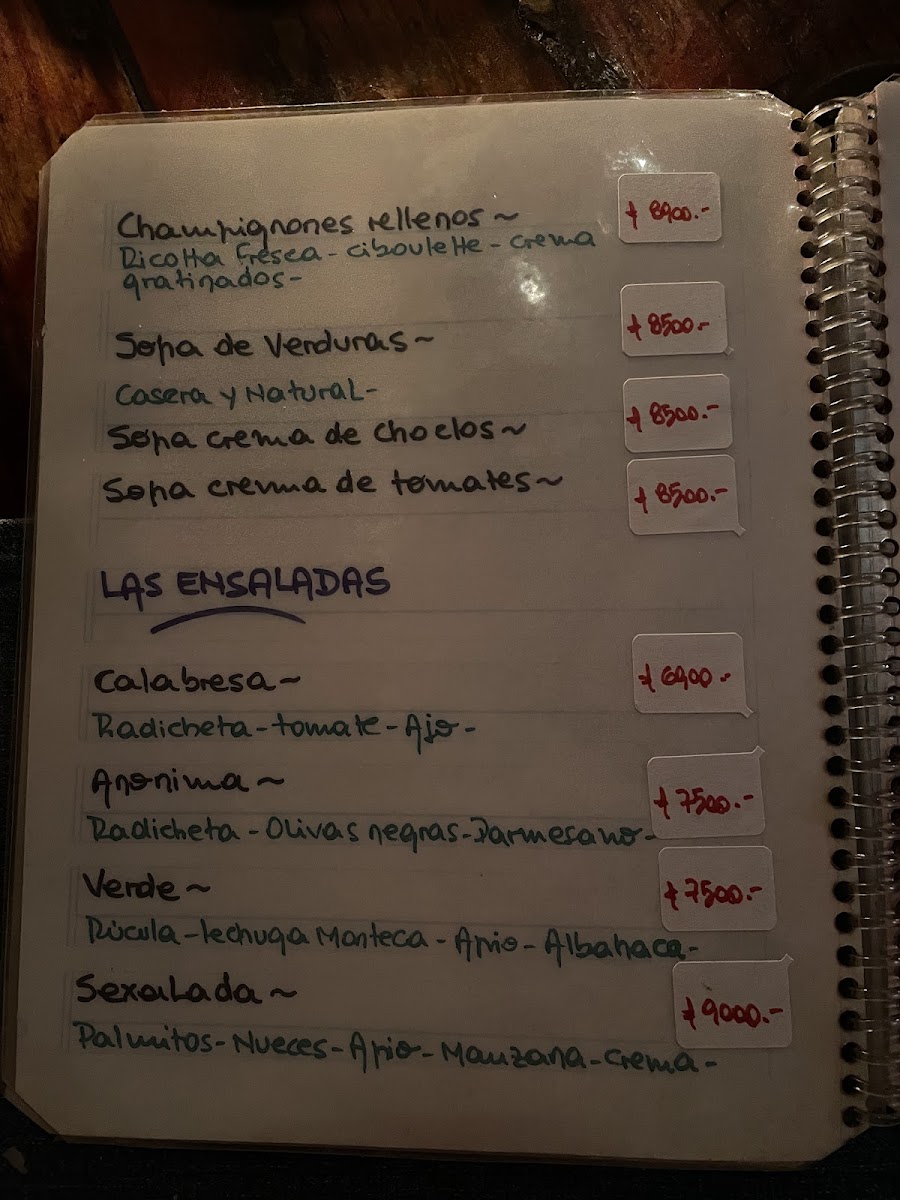 Champignones rellenos ~ $ 8900.-
Ricotta Fresca - ciboulette - crema
gratinados -
Sopa de Verduras ~ $ 8500.-
Casera y Natural -
Sopa crema de choclos ~ $ 8500.-
Sopa crema de tomates ~ $ 8500.-
LAS ENSALADAS
Calabresa ~ $ 6900.-
Radicheta - tomate - Ajo -
Anonima ~ $ 7500.-
Radicheta - Olivas negras - Parmesano -
Verde ~ $ 7500.-
Rúcula - lechuga Manteca - Apio - Albahaca -
Sexalada ~ $ 9000.-
Palmitos - Nueces - Apio - Manzana - crema -